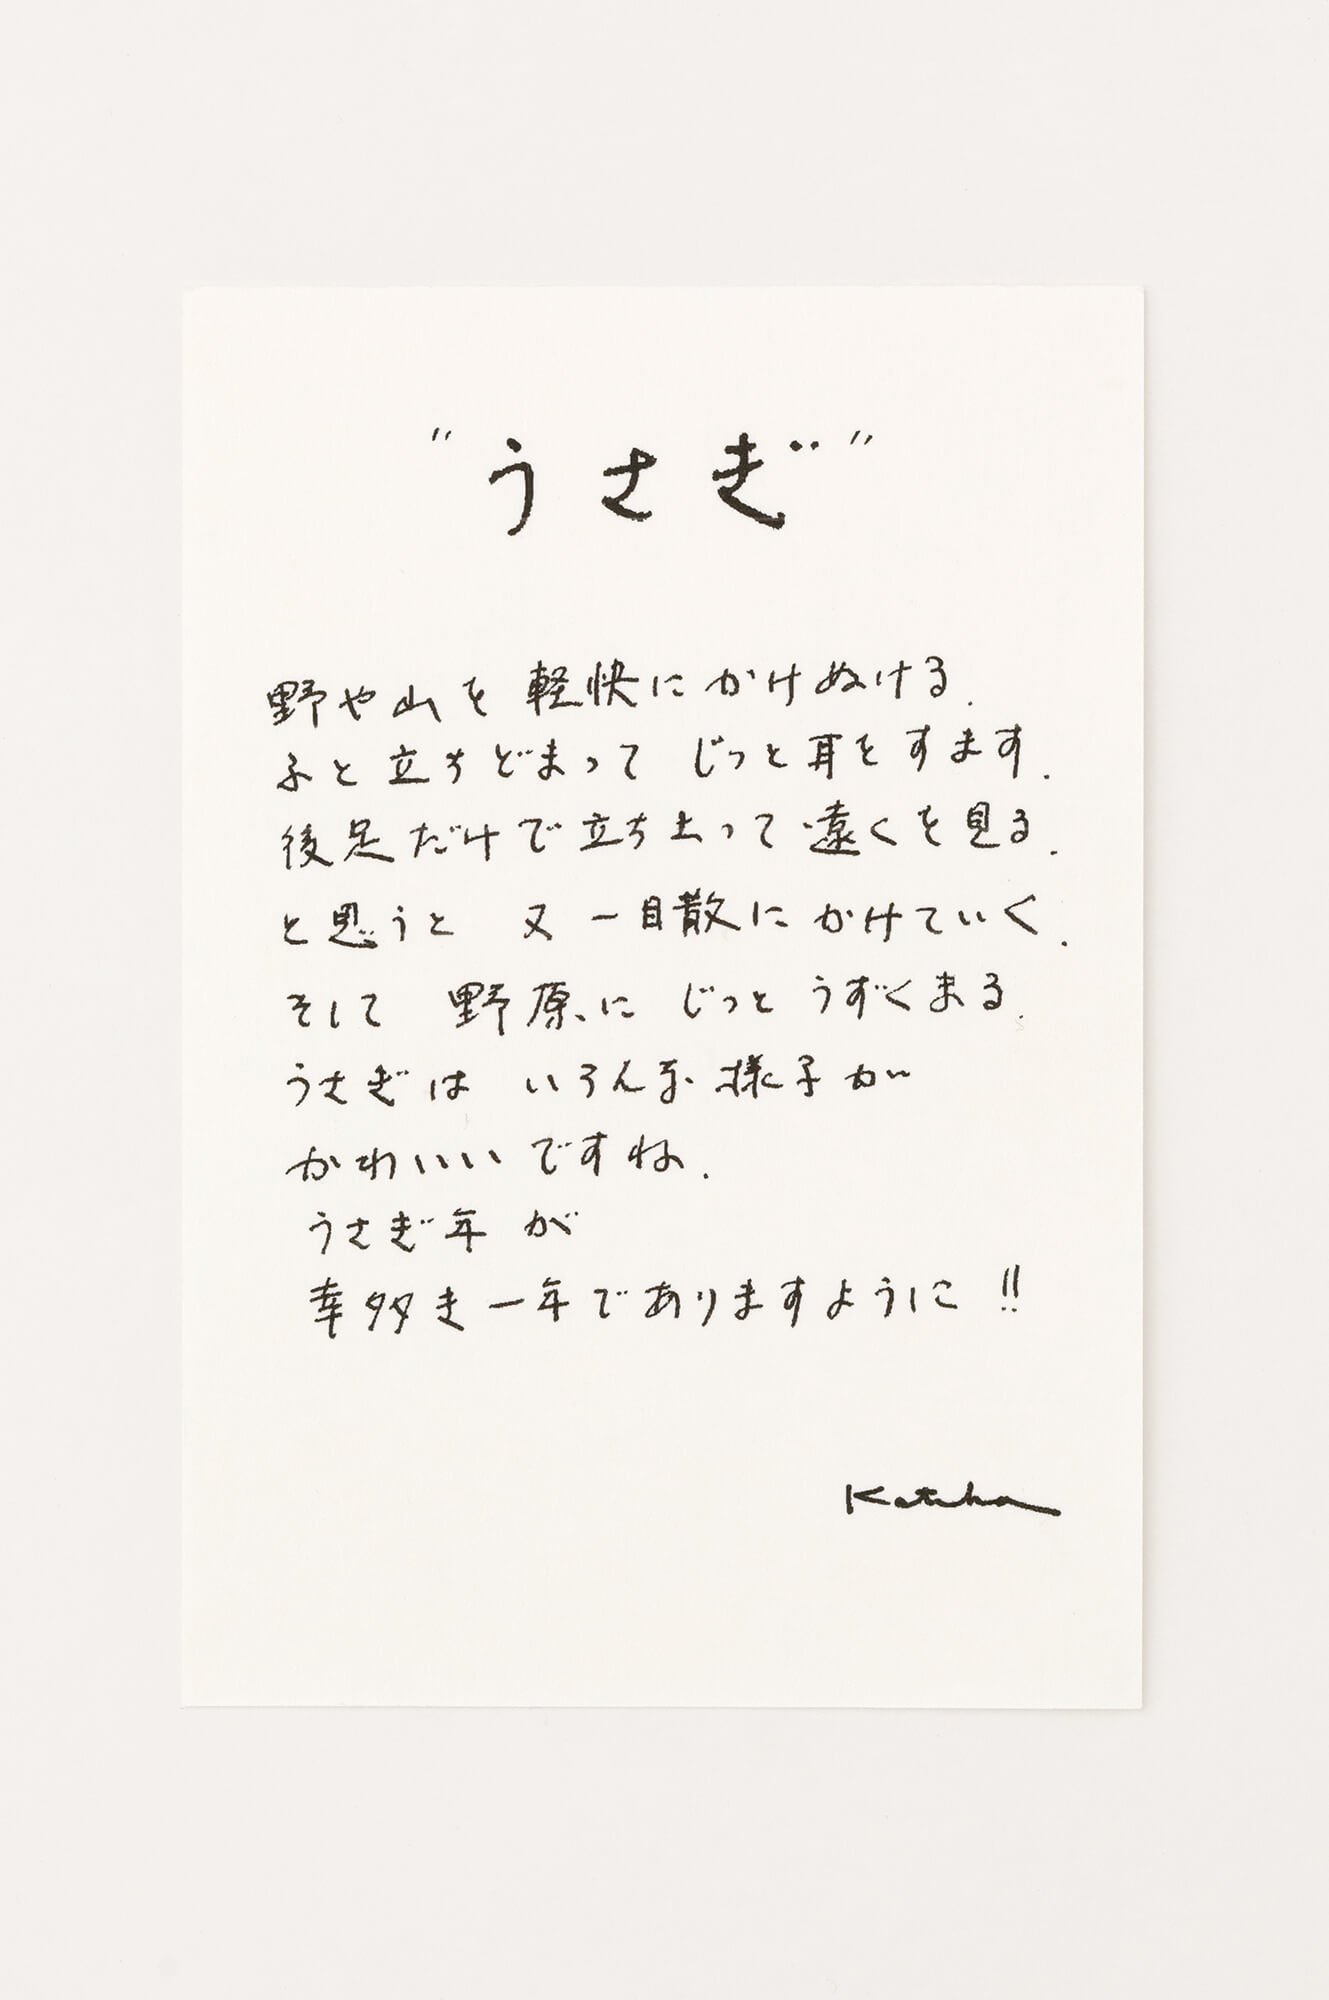 "うさぎ"
野や山を 軽快に かけぬける.
ふと 立ちどまって じっと 耳を すます.
後足だけで 立ち上って 遠くを 見る.
と思うと 又 一目散に かけていく.
そして 野原に じっと うずくまる.
うさぎは いろんな 様子が
かわいいですね.
うさぎ年 が
幸多き 一年でありますように !!